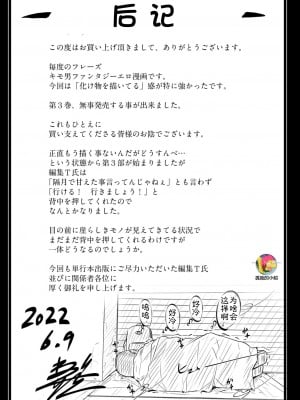 后记
この度はお買い上げ頂きまして、ありがとうございます。
毎度のフレーズ
キモ男ファンタジーエロ漫画です。
今回は「化け物を描いてる」感が特に強かったです。
第3巻、無事発売する事が出来ました。
これもひとえに
買い支えてくださる皆様のお陰でございます。
正直もう描く事ないんだがどうすんべ…
という状態から第3部が始まりましたが
編集T氏は
「隔月で甘えた事言ってんじゃねぇ」とも言わず
「行ける! 行きましょう!」と
背中を押してくれたので
なんとかなりました。
目の前に崖らしきモノが見えてきてる状況で
まだまだ背中を押してくれるわけですが
一体どうなるのでしょうか。
今回も単行本出版にご尽力いただいた編集T氏
並びに関係者各位に
厚く御礼を申し上げます。
为啥会
这样啊
好冷
好冷
呜呜
2022
6.9